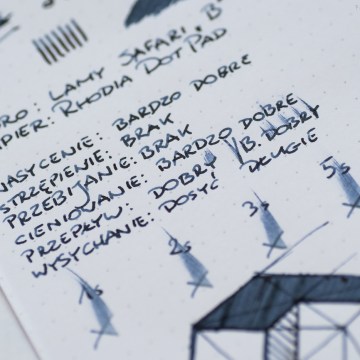 PIÓRO: LAMY SAFARI, B
PAPIER: RHODIA DOT PAD
NASYCENIE: BARDZO DOBRE
STRZĘPIENIE: BRAK
PRZEBIJANIE: BRAK
CIENIOWANIE: BARDZO DOBRE
PRZEPŁYW: DOBRY /B. DOBRY
WYSYCHANIE: DOSYĆ DŁUGIE
1s 2s 3s 5s